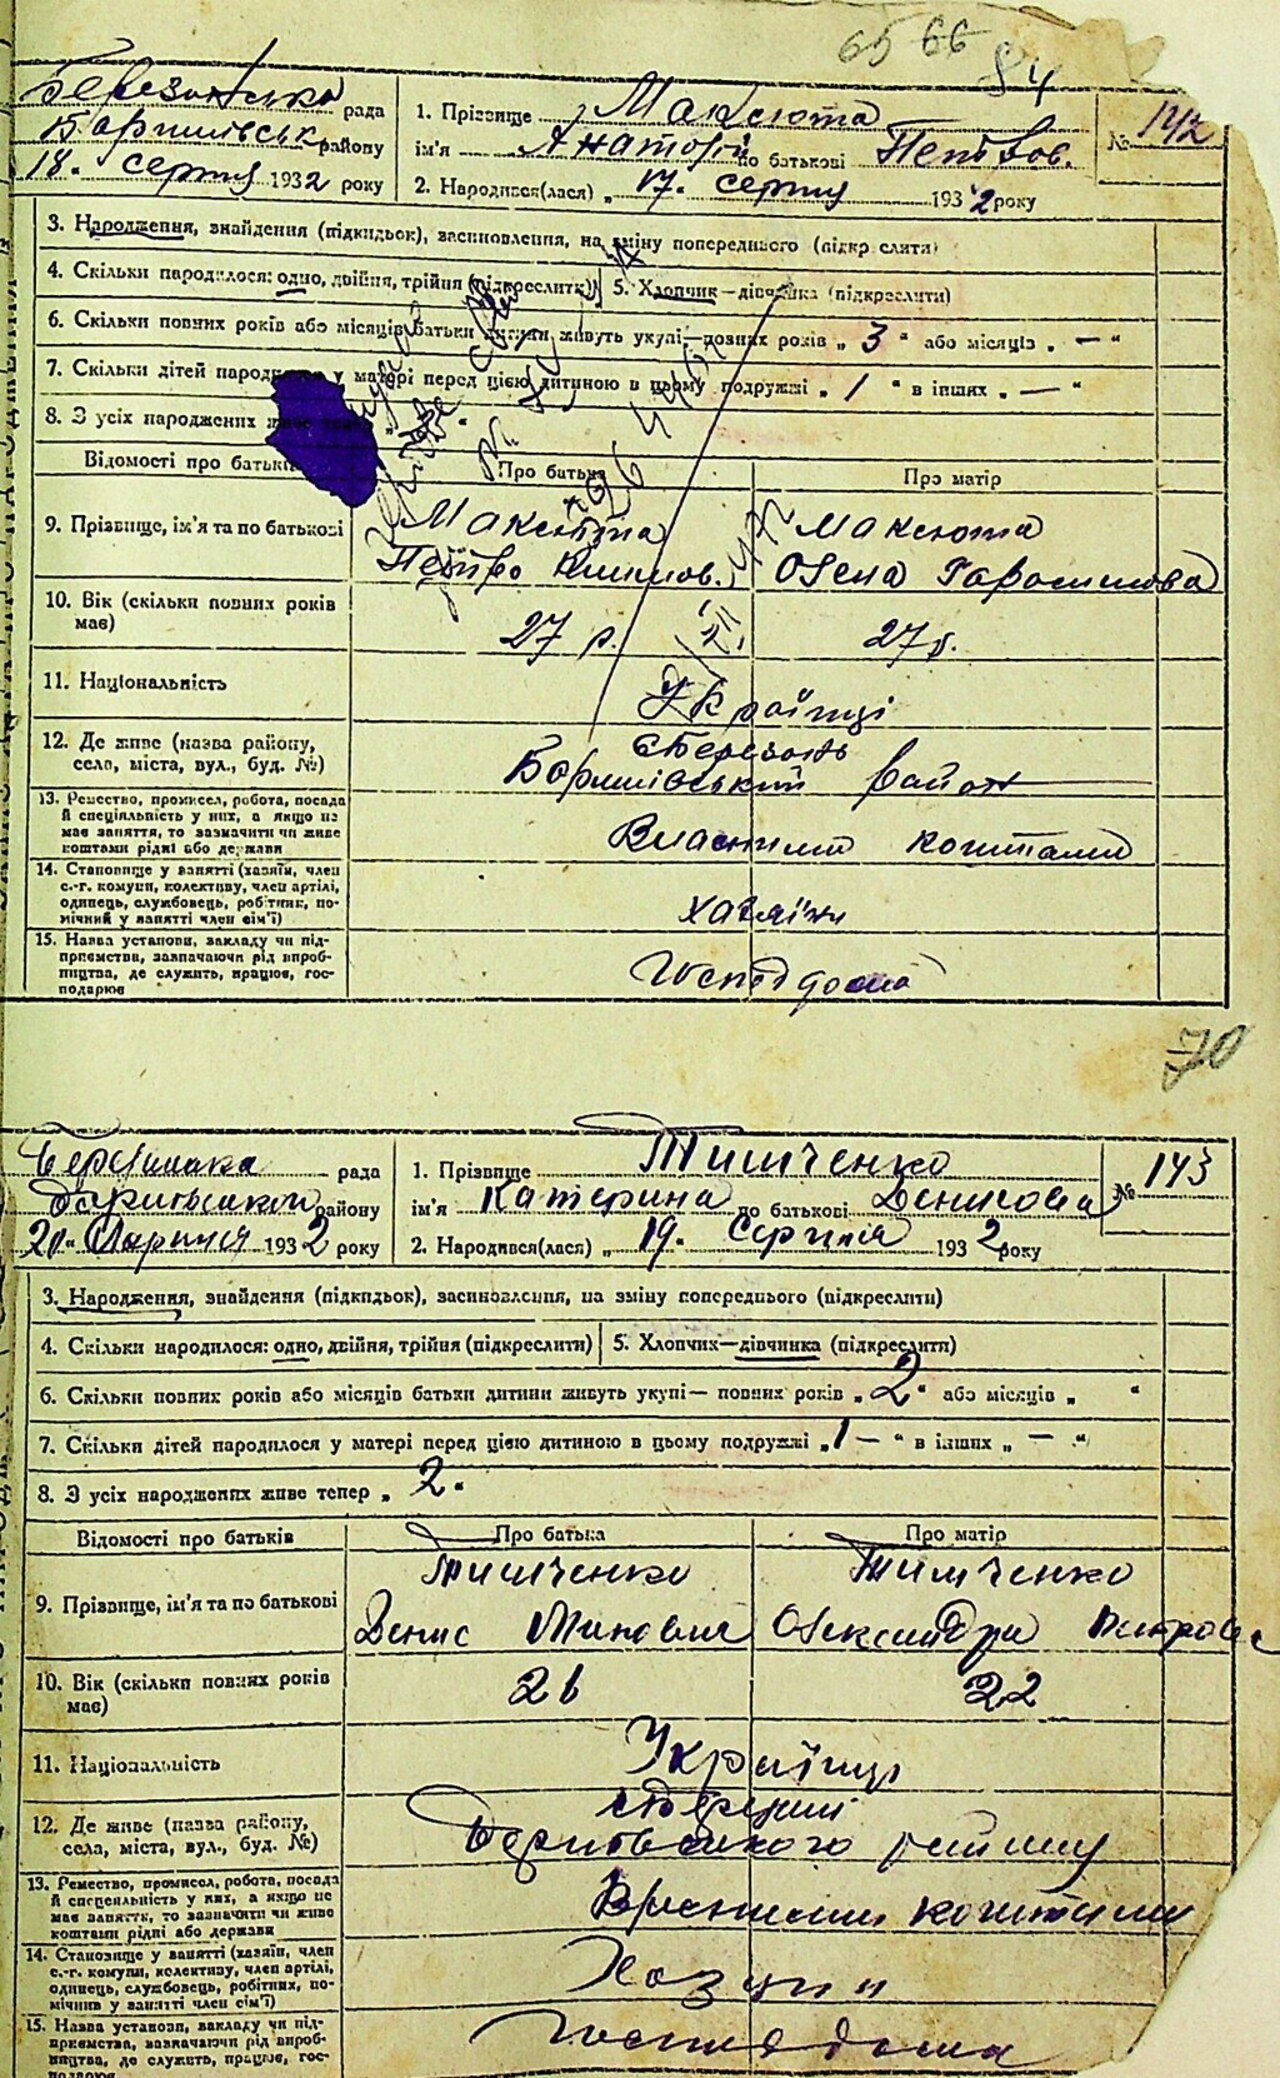 65 66 84
Березанська рада
Баришівськ району
18. серпня 1932 року
1. Прізвище Максюта
ім'я Анатолій по батькові Петров.
2. Народився(лася) „ 17. серпня 1932 року
№ 142
3. Народження, знайдення (підкидьок), засиновлення, на зміну попереднього (підкреслити)
4. Скільки народилося: одно, двійня, трійня (підкреслити)
5. Хлопчик—дівчинка (підкреслити)
6. Скільки повних років або місяців батьки дитини живуть укупі—повних років „ 3 “ або місяців „ — “
7. Скільки дітей народилося у матері перед цією дитиною в цьому подружжі „ 1 “ в інших „ — “
8. З усіх народжених живе тепер „
Відомості про батьків
Про батька
Про матір
9. Прізвище, ім'я та по батькові
Максюта
Петро
Максюта
Олена Гарасимова
10. Вік (скільки повних років має)
27 р.
27 р.
11. Національність
Українці
12. Де живе (назва району,
села, міста, вул., буд. №)
с Березань
Баришівський район
13. Ремество, промисел, робота, посада
й спеціяльність у них, а якщо не
має заняття, то зазначити чи живе
коштами рідні або держави
Власними коштами
14. Становище у занятті (хазяїн, член
с.-г. комуни, колективу, член артілі,
одинець, службовець, робітник, по-
мічний у занятті член сім'ї)
хазяїни
15. Назва установи, закладу чи під-
приємства, зазначаючи рід вироб-
ництва, де служить, працює, гос-
подарює
Господ дома
70
Березанська рада
району
20. Серпня 1932 року
1. Прізвище Тимченко
ім'я Катерина по батькові Денисова
2. Народився(лася) „ 19. Серпня 1932 року
№ 143
3. Народження, знайдення (підкидьок), засиновлення, на зміну попереднього (підкреслити)
4. Скільки народилося: одно, двійня, трійня (підкреслити)
5. Хлопчик—дівчинка (підкреслити)
6. Скільки повних років або місяців батьки дитини живуть укупі— повних років „ 2 “ або місяців „ “
7. Скільки дітей народилося у матері перед цією дитиною в цьому подружжі „ 1 — “ в інших „ — “
8. З усіх народжених живе тепер „ 2 “
Відомості про батьків
Про батька
Про матір
9. Прізвище, ім'я та по батькові
Тимченко
Денис
Тимченко
Олександра Петрова
10. Вік (скільки повних років має)
26
22
11. Національність
Українці
12. Де живе (назва району,
села, міста, вул., буд. №)
району
13. Ремество, промисел, робота, посада
й спеціяльність у них, а якщо не
має заняття, то зазначити чи живе
коштами рідні або держави
Власними коштами
14. Становище у занятті (хазяїн, член
с.-г. комуни, колективу, член артілі,
одинець, службовець, робітник, по-
мічний у занятті член сім'ї)
15. Назва установи, закладу чи під-
приємства, зазначаючи рід вироб-
ництва, де служить, працює, гос-
подарює
дома